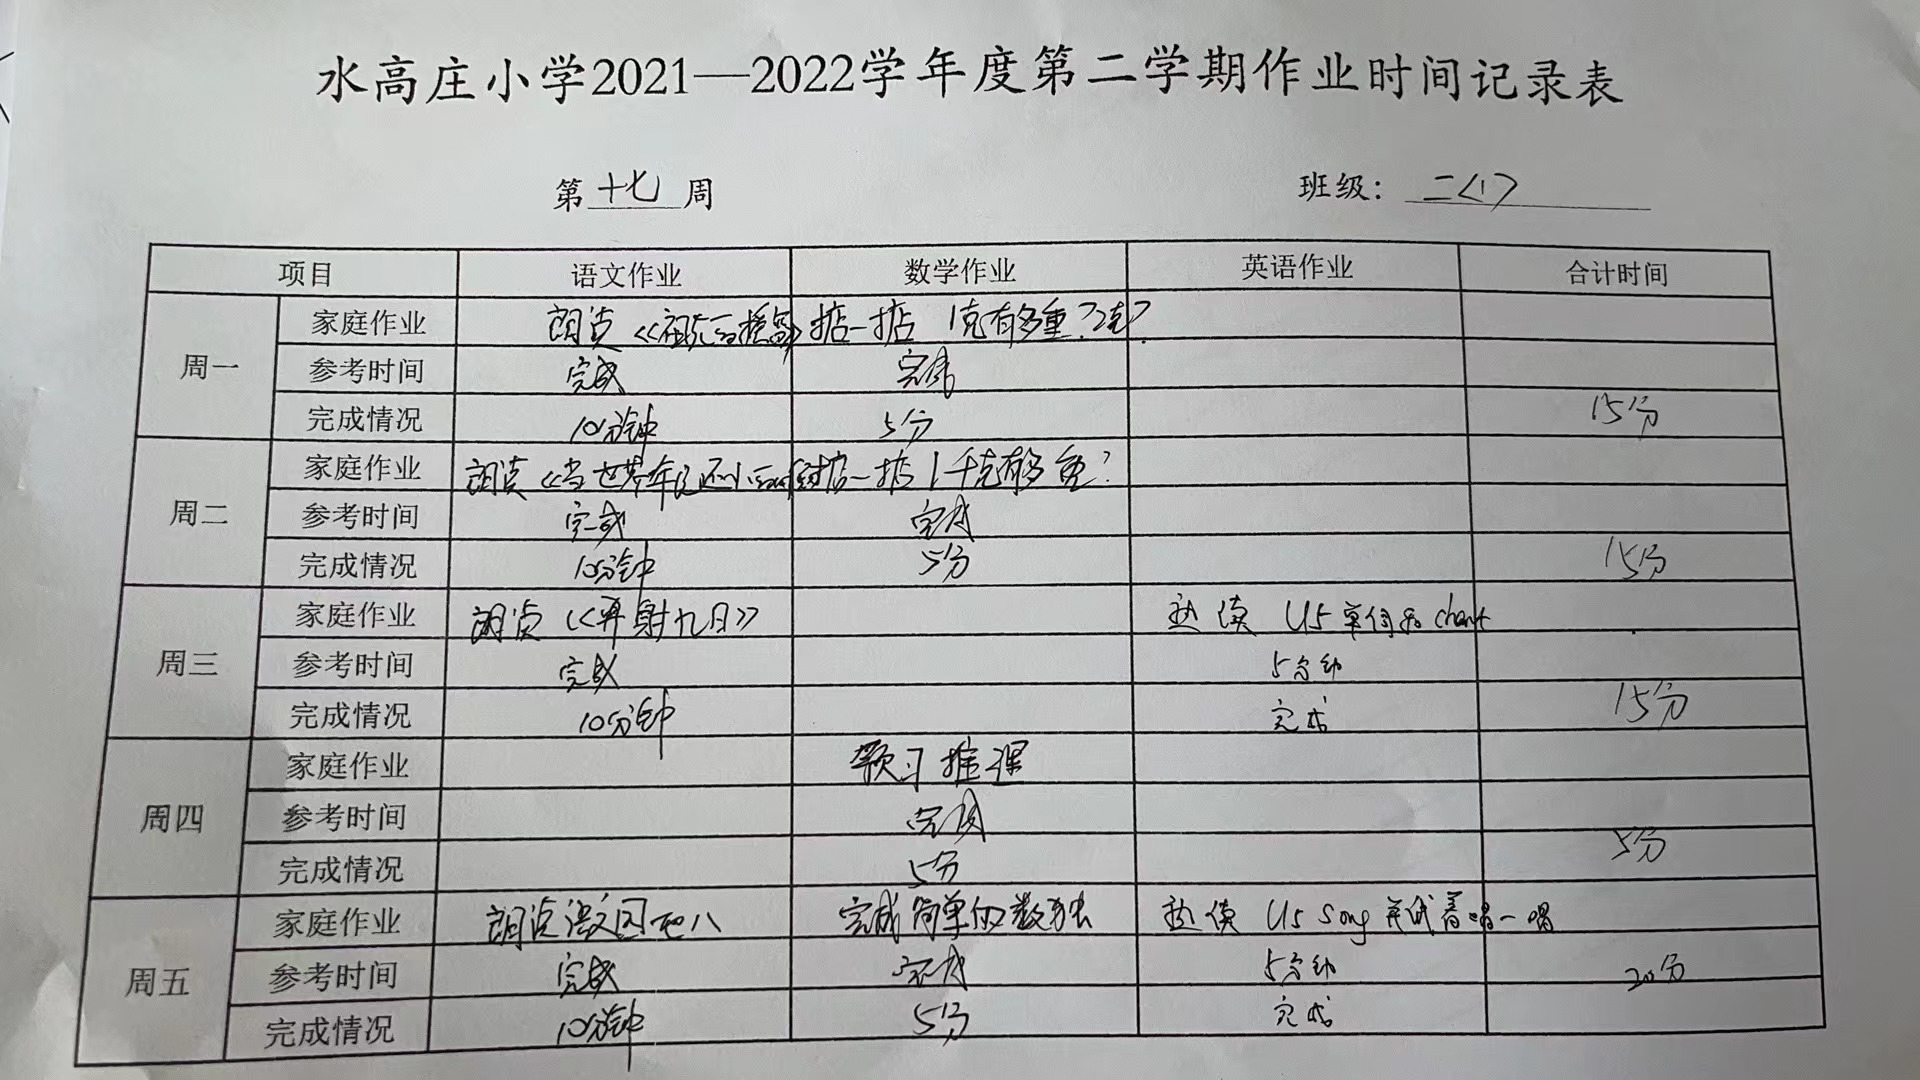 水高庄小学2021—2022学年度第二学期作业时间记录表
第十七周 班级：二<1>
项目 语文作业 数学作业 英语作业 合计时间
周一
家庭作业 朗读《祖先的摇篮》 掂一掂 1克有多重？2克？
参考时间 完成 完成
完成情况 10分钟 5分 15分
周二
家庭作业 朗读《当世界年纪还小的时候 掂一掂 1千克有多重？
参考时间 完成 完成
完成情况 10分钟 5分 15分
周三
家庭作业 朗读《羿射九日》 熟读 U5 单词和 chant
参考时间 完成 5分钟
完成情况 10分钟 完成 15分
周四
家庭作业 预习推理
参考时间 完成
完成情况 5分 5分
周五
家庭作业 朗读语文园地八 完成简单的数独 熟读 U5 Song 并试着唱一唱
参考时间 完成 完成 5分钟 20分
完成情况 10分钟 5分 完成